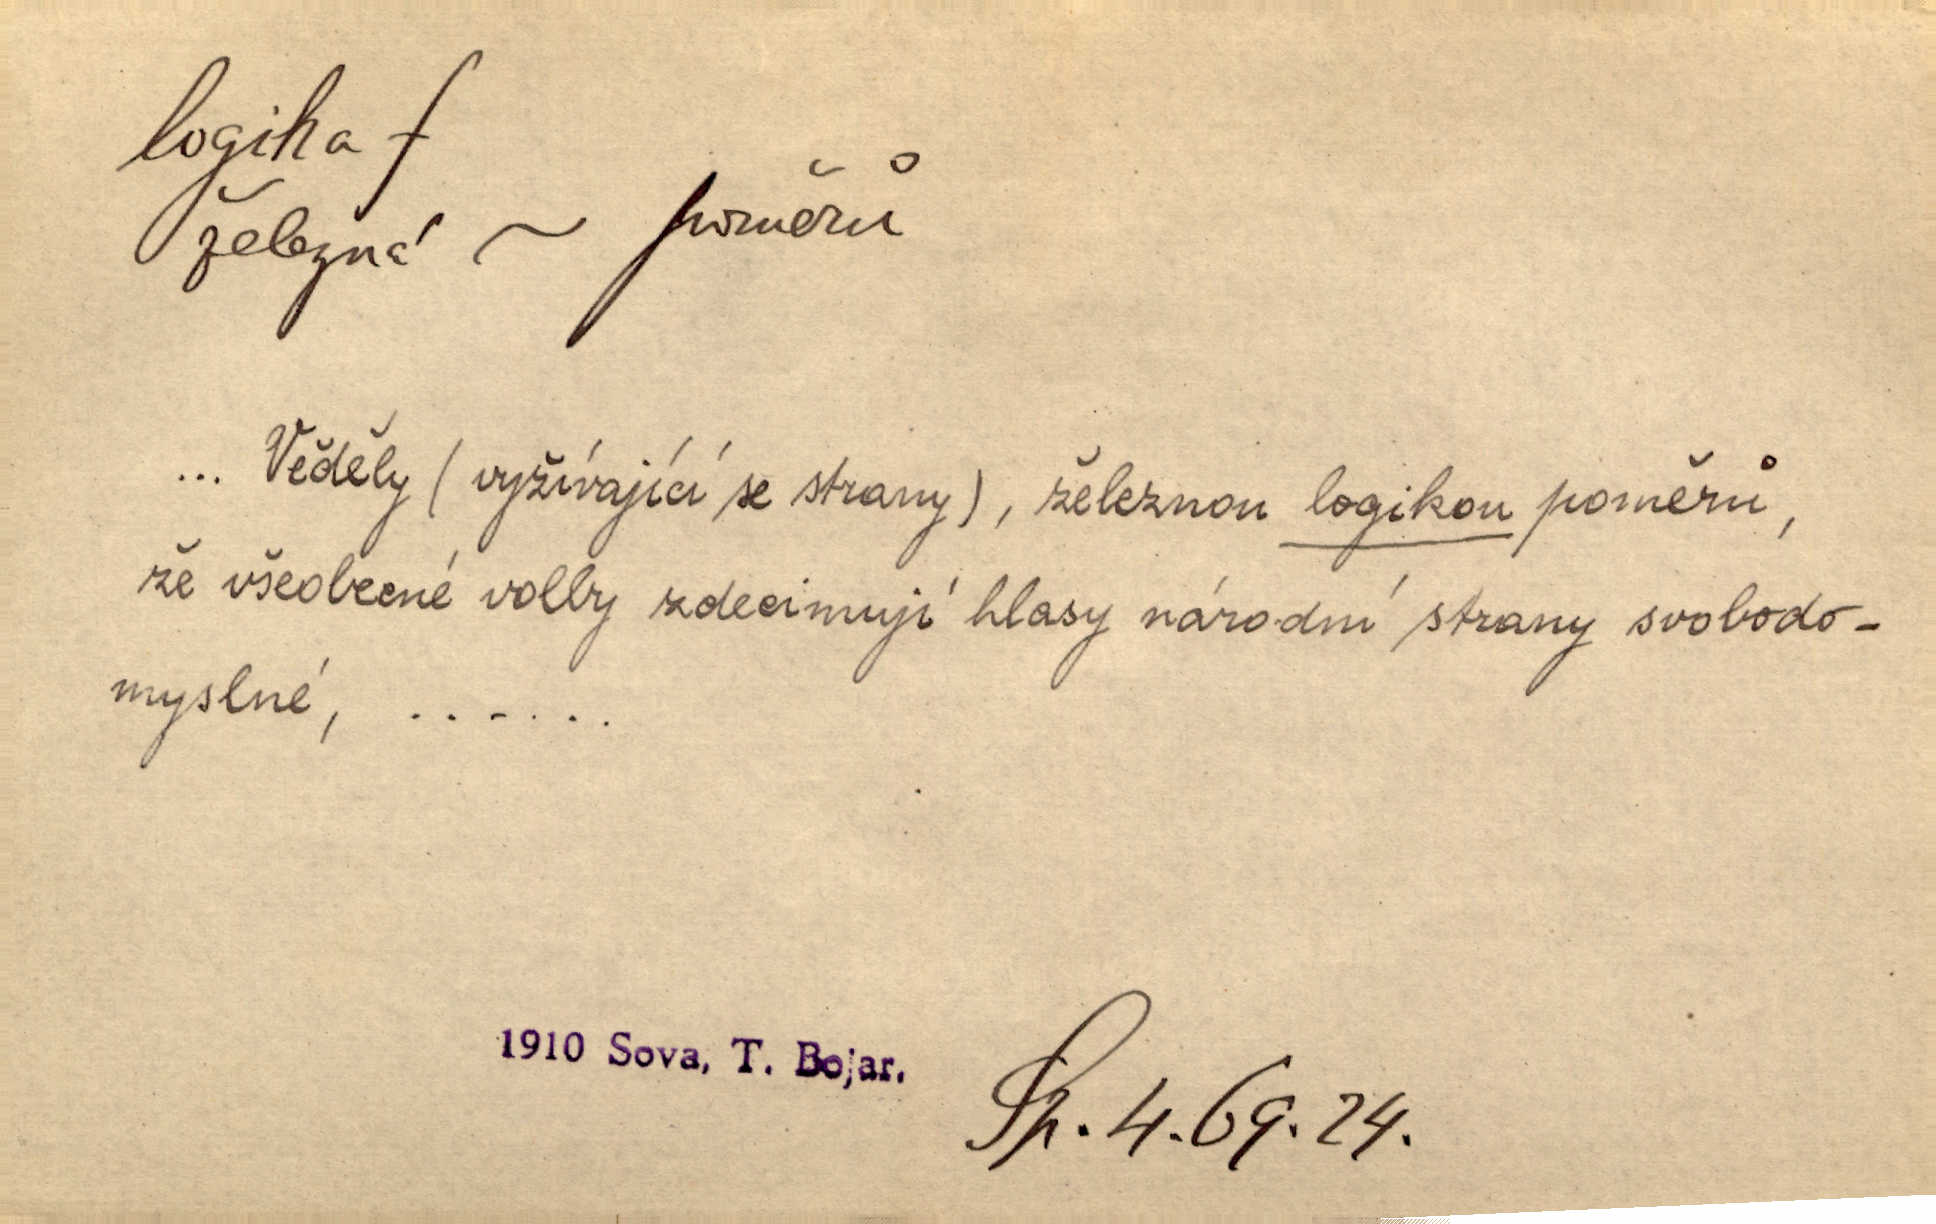 logika f
železná ~ poměrů
... Věděly (vyžívající se strany), železnou logikou poměrů,
že všeobecné volby zdecimují hlasy národní strany svobodo-
myslné, .......
1910 Sova, T. Bojar.
Sp. 4. 69. 24.